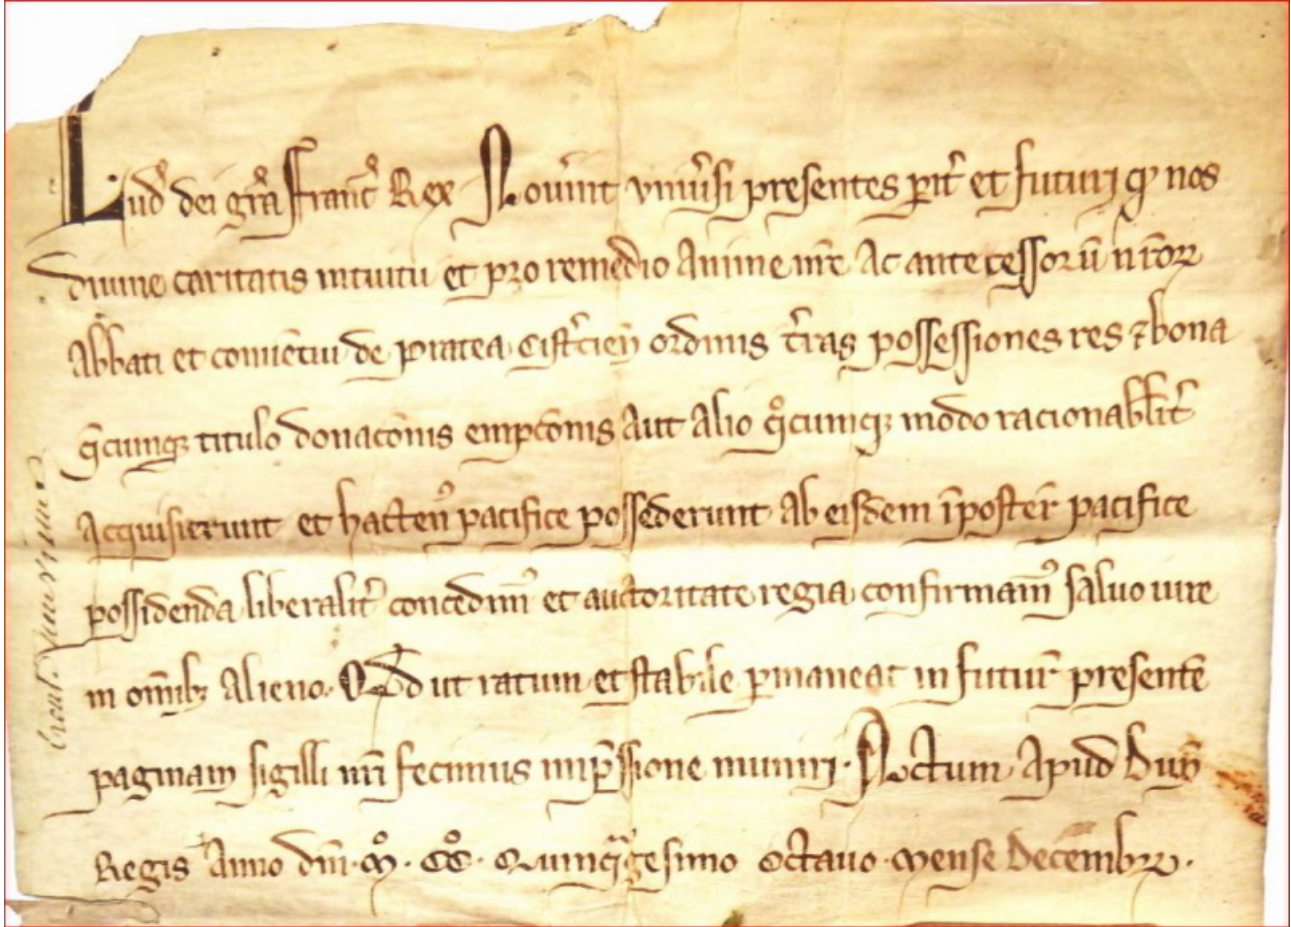 Lud' dei gr̃a Franc' Rex Nou'int vniu'si presentes p̱it' et futuri ꝙ nos
diuine caritatis intuitu et pro remedio anime nr̃e ac antecessorū nr̃oꝝ
abbati et conuētui de Pratea Cist'cien̄ ordinis t'ras possessiones res ⁊ bona
q̄cumqꝫ titulo donac̄onis empc̄onis aut alio qͦcumqꝫ modo racionabil'r
acquisierunt et hactenꝰ pacifice possederunt ab eisdem īposter̄ pacifice
possidenda liberalit' concedimꝰ et auctoritate regia confirmamꝰ saluo iure
in om̄ibꝫ alieno. Qd ut ratum et stabile ꝑmaneat in futur̄ presentē
paginam sigilli nr̃i fecimus imp̄ssione muniri. Actum apud
Regis Anno dn̄i. mͦ. ccͦ. Quinqᵃgesimo octauo. mense Decembr̃.